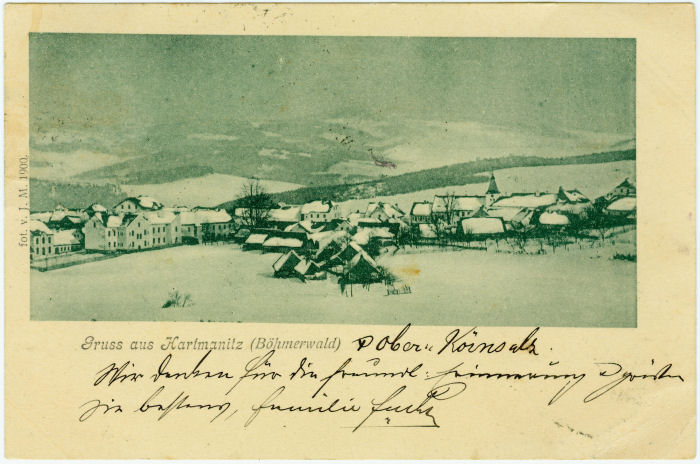 fot. v. J. M. 1900.
Gruss aus Hartmanitz (Böhmerwald) Ober Körnsalz.
Wir danken für die freundl. Erinnerung u grüßen
Sie bestens, Familie Fuchs